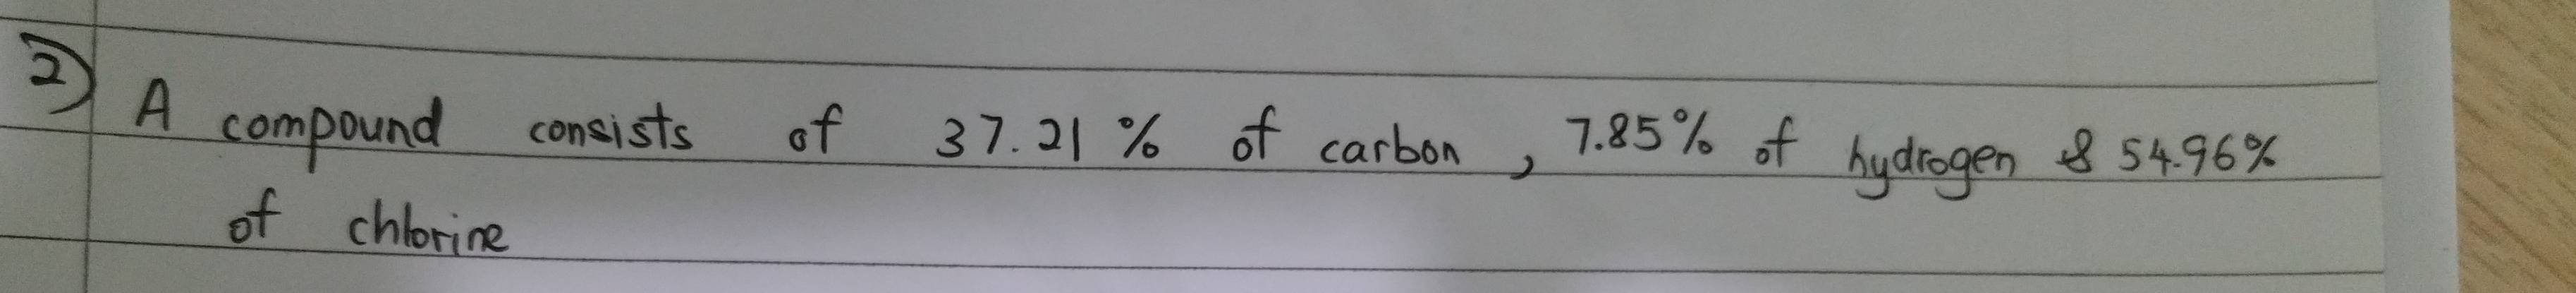 2) A compound consists of 37.21% of carbon, 7.85% of hydrogen & 54.96%
of chlorine